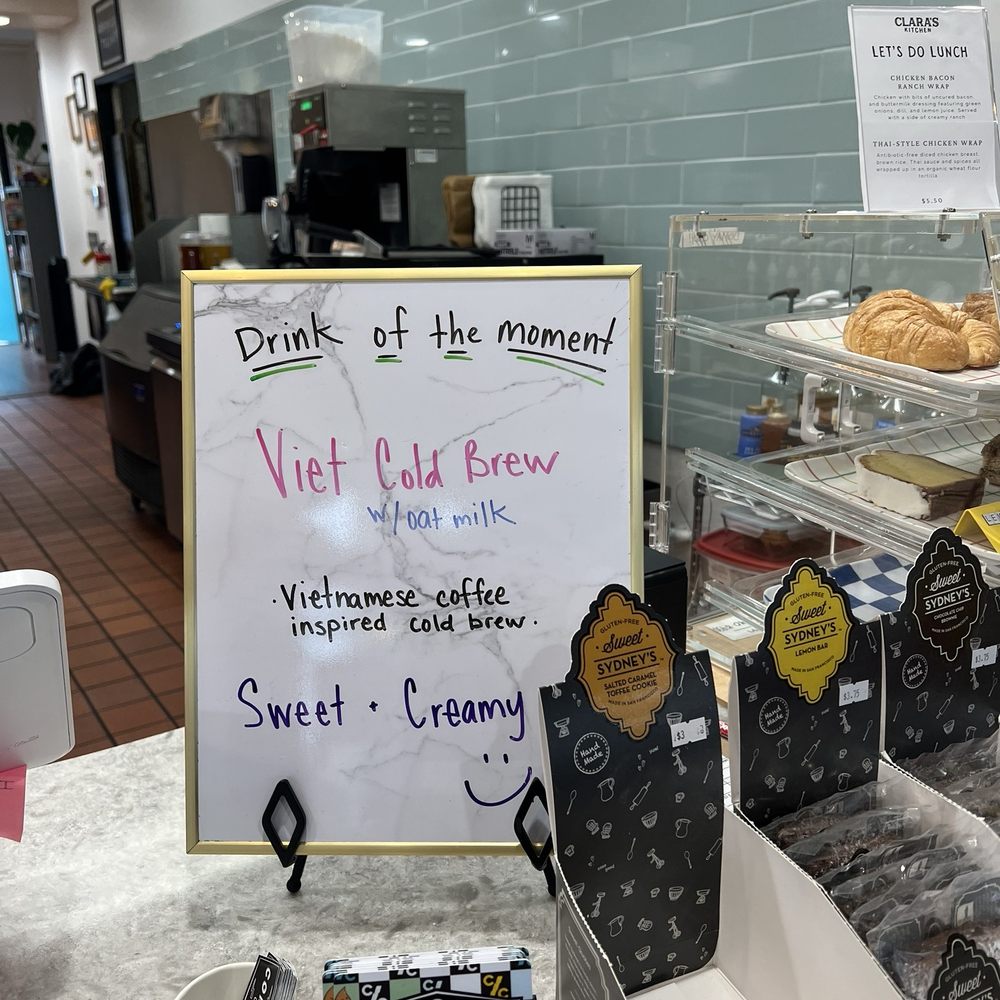 Drink of the moment
Viet Cold Brew
w/oat milk
· Vietnamese coffee
inspired cold brew.
Sweet · Creamy
CLARA'S
KITCHEN
LET'S DO LUNCH
CHICKEN BACON
RANCH WRAP
Chicken with bits of uncured bacon
and buttermilk dressing featuring green
onions, dill, and lemon juice. Served
with a side of creamy ranch
THAI-STYLE CHICKEN WRAP
Antibiotic-free diced chicken breast,
brown rice, Thai sauce and spices all
wrapped up in an organic wheat flour
tortilla
$5.50
GLUTEN-FREE
Sweet
SYDNEY'S
SALTED CARAMEL
TOFFEE COOKIE
MADE IN SAN FRANCISCO
Hand
Made
$3
GLUTEN-FREE
Sweet
SYDNEY'S
LEMON BAR
MADE IN SAN FRANCISCO
Hand
Made
$3.75
GLUTEN-FREE
Sweet
SYDNEY'S
CHOCOLATE CHIP
BROWNIE
MADE IN SAN FRANCISCO
Hand
Made
$3.75
GLUTEN-FREE
Sweet
C/C
C/C
C/C